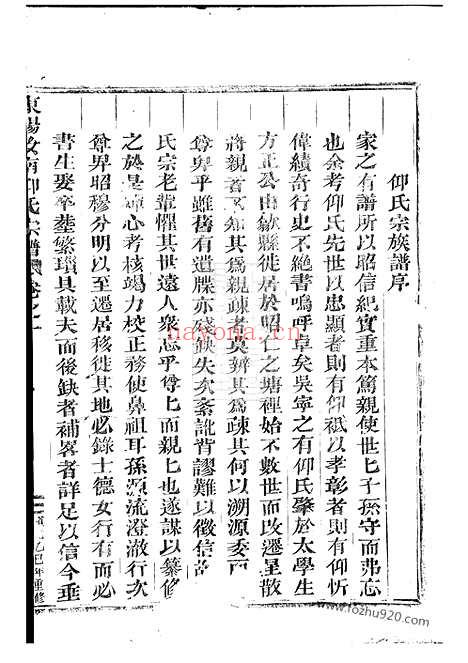 仰氏宗族譜序
家之有譜所以昭信紀實重本篤親使世七子孫守而弗忘
也余考仰氏先世以忠顯者則有仰祗以孝彰者則有仰忻
偉績奇行史不絶書嗚呼卓矣吳寧之有仰氏肇於太學生
方正公由歙縣徙居於昭仁之塘裡始不數世而遷星散
將親者不知其為親疎者莫辨其為疎其何以溯源委而
尊卑乎雖舊有遺牒亦殘缺失次紊訛背謬難以徵信
氏宗老輩懼其世遠人衆忘乎尊上而親七也遂謀以纂修
之於是 心考核竭力校正務使鼻祖耳孫源流澄澈行次
尊昇昭穆分明以至遷居移徙其地必錄士德女行有而必
書生娶卒塟繁瑣具載夫而後缺者補畧者詳足以信今垂
東陽 南仰氏宗譜 卷之一
乙巳年重修
nayona.cn
www.fozhu920.com